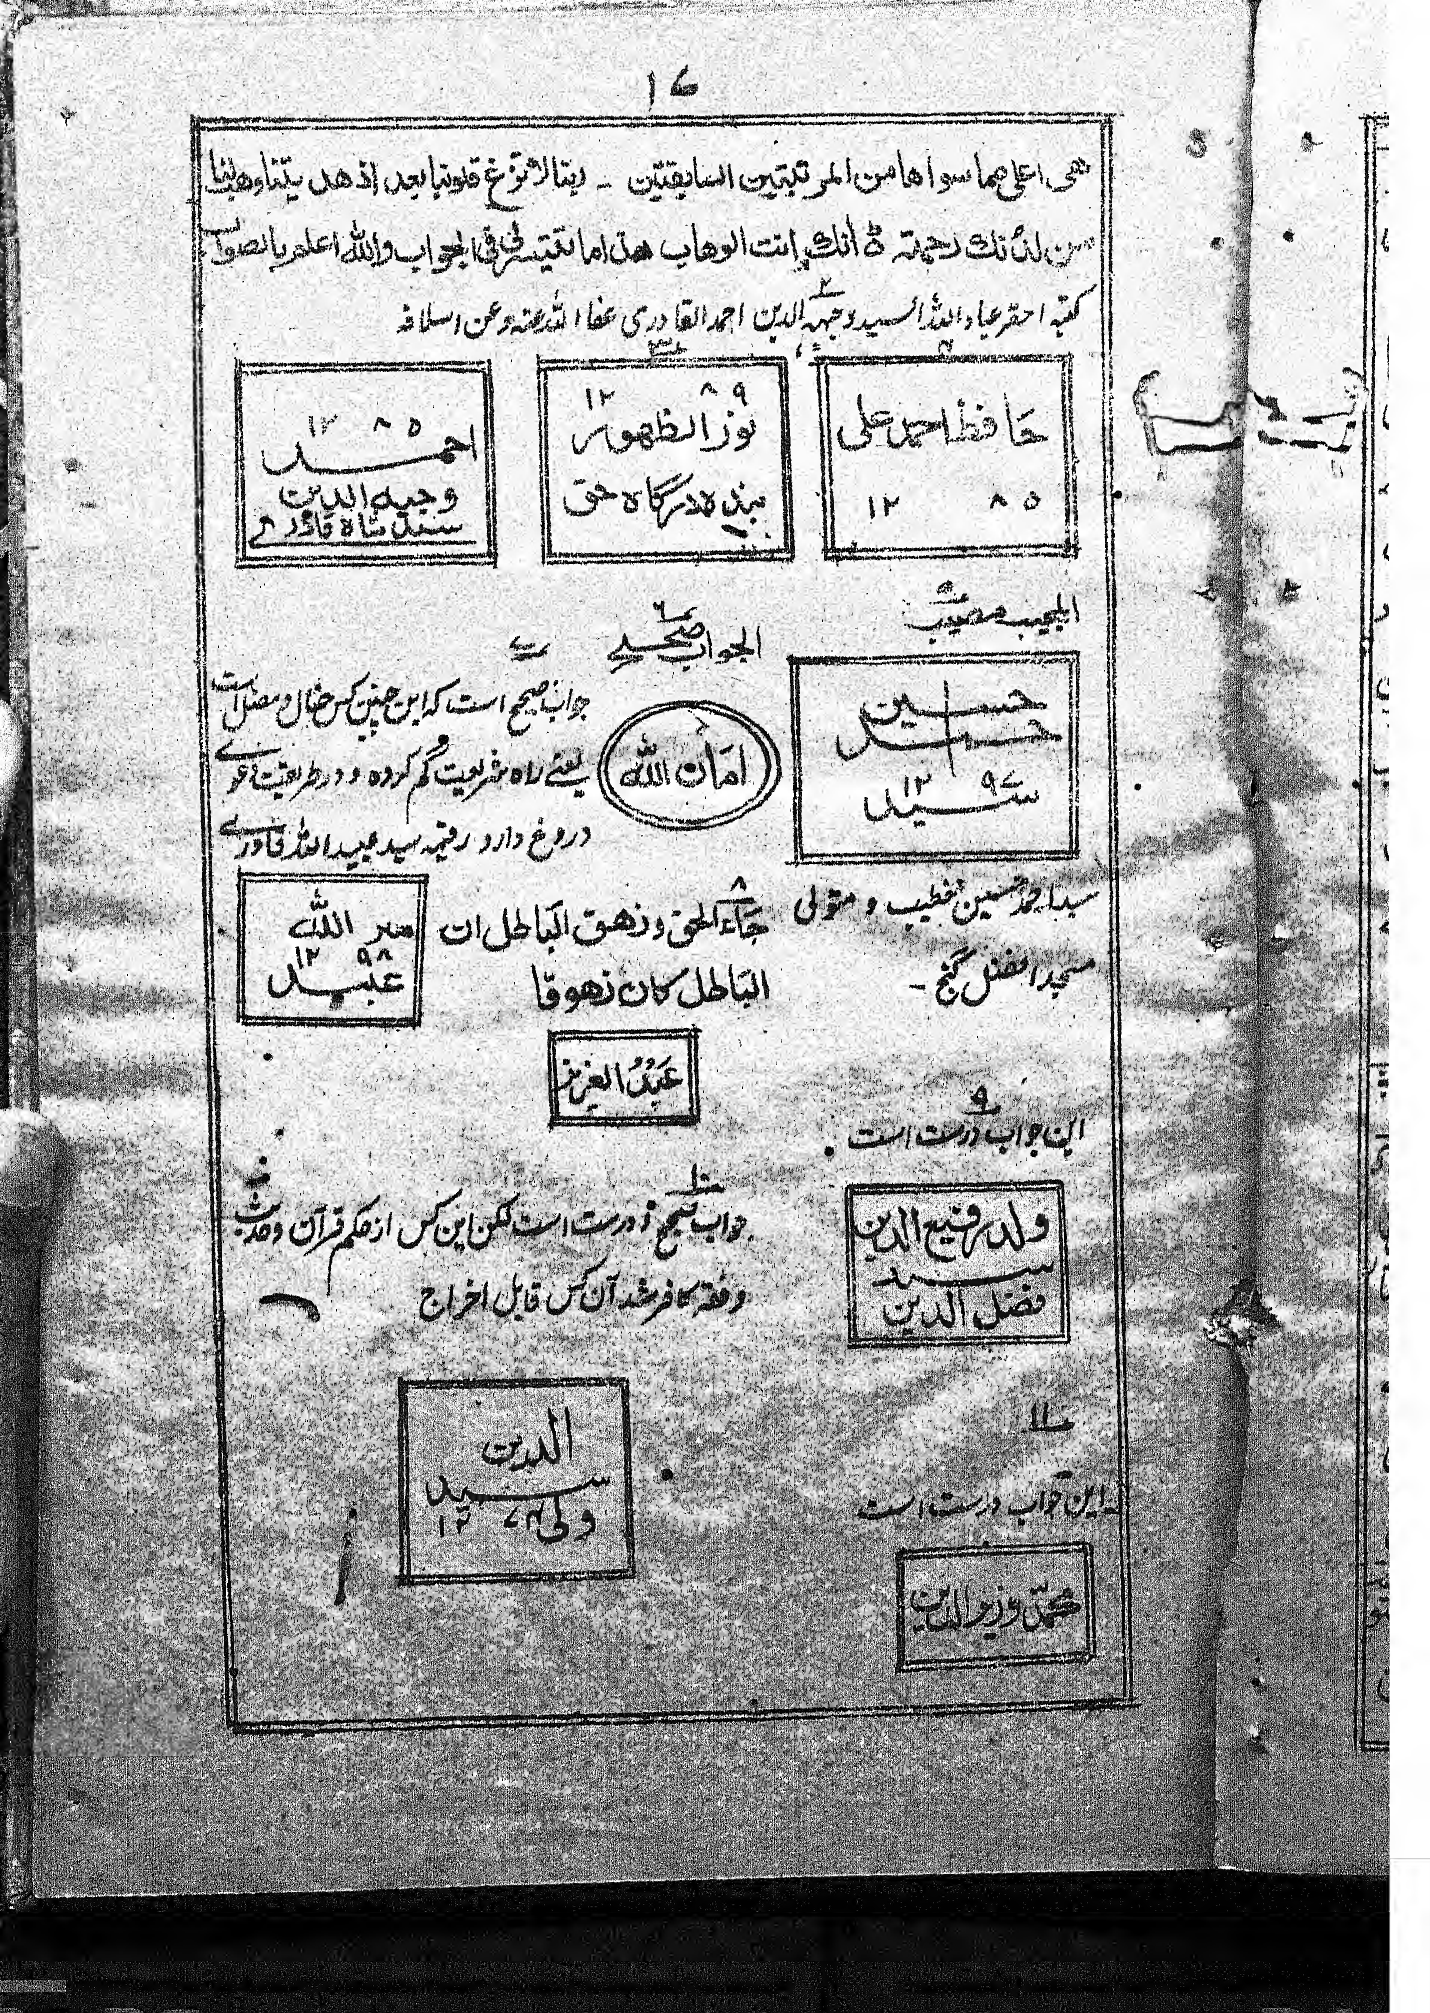 ۱۷
هی اعلی مما سواها من المرتبتین السابقتین - ربنا لا تزغ قلوبنا بعد اذ هدیتنا وهب لنا
من لدنک رحمة انک انت الوهاب هذا ما تیسر لی فی الجواب والله اعلم بالصواب
کتبه احقر عباد الله السید وجیه الدین احمد القادری عفا الله عنه وعن اسلافه
۲
۳
حافظ احمد علی
۱۲ ۸۵
۱۲ ۸۹
نور الظهور
بنده درگاه حق
۱۲ ۸۵
احمد
وجیه الدین
سید شاه قادری
۵
المجیب مصیب
حسین
سید
۱۲ ۹۷
سید احمد حسین خطیب و متولی
مسجد افضل گنج -
۶
الجواب صحیح
امان الله
۷
جواب صحیح است که این چنین کس ضال و مضل است
یعنے راه شریعت گم کرده و در طریقت دعوی
دروغ دارد رقیمه سید عبید الله قادری
الله
۱۲ ۹۸
عبید
۸
جاء الحق وزهق الباطل ان
الباطل کان زهوقا
عبد العزیز
۹
این جواب درست است
ولد رفیع الدین
سید
فضل الدین
۱۰
جواب صحیح و درست است لکن این کس از حکم قرآن و حدیث
و فقه کافر شد آن کس قابل اخراج
الدین
سید
ولی ۱۲
۱۱
این جواب درست است
محمد وزیر الدین